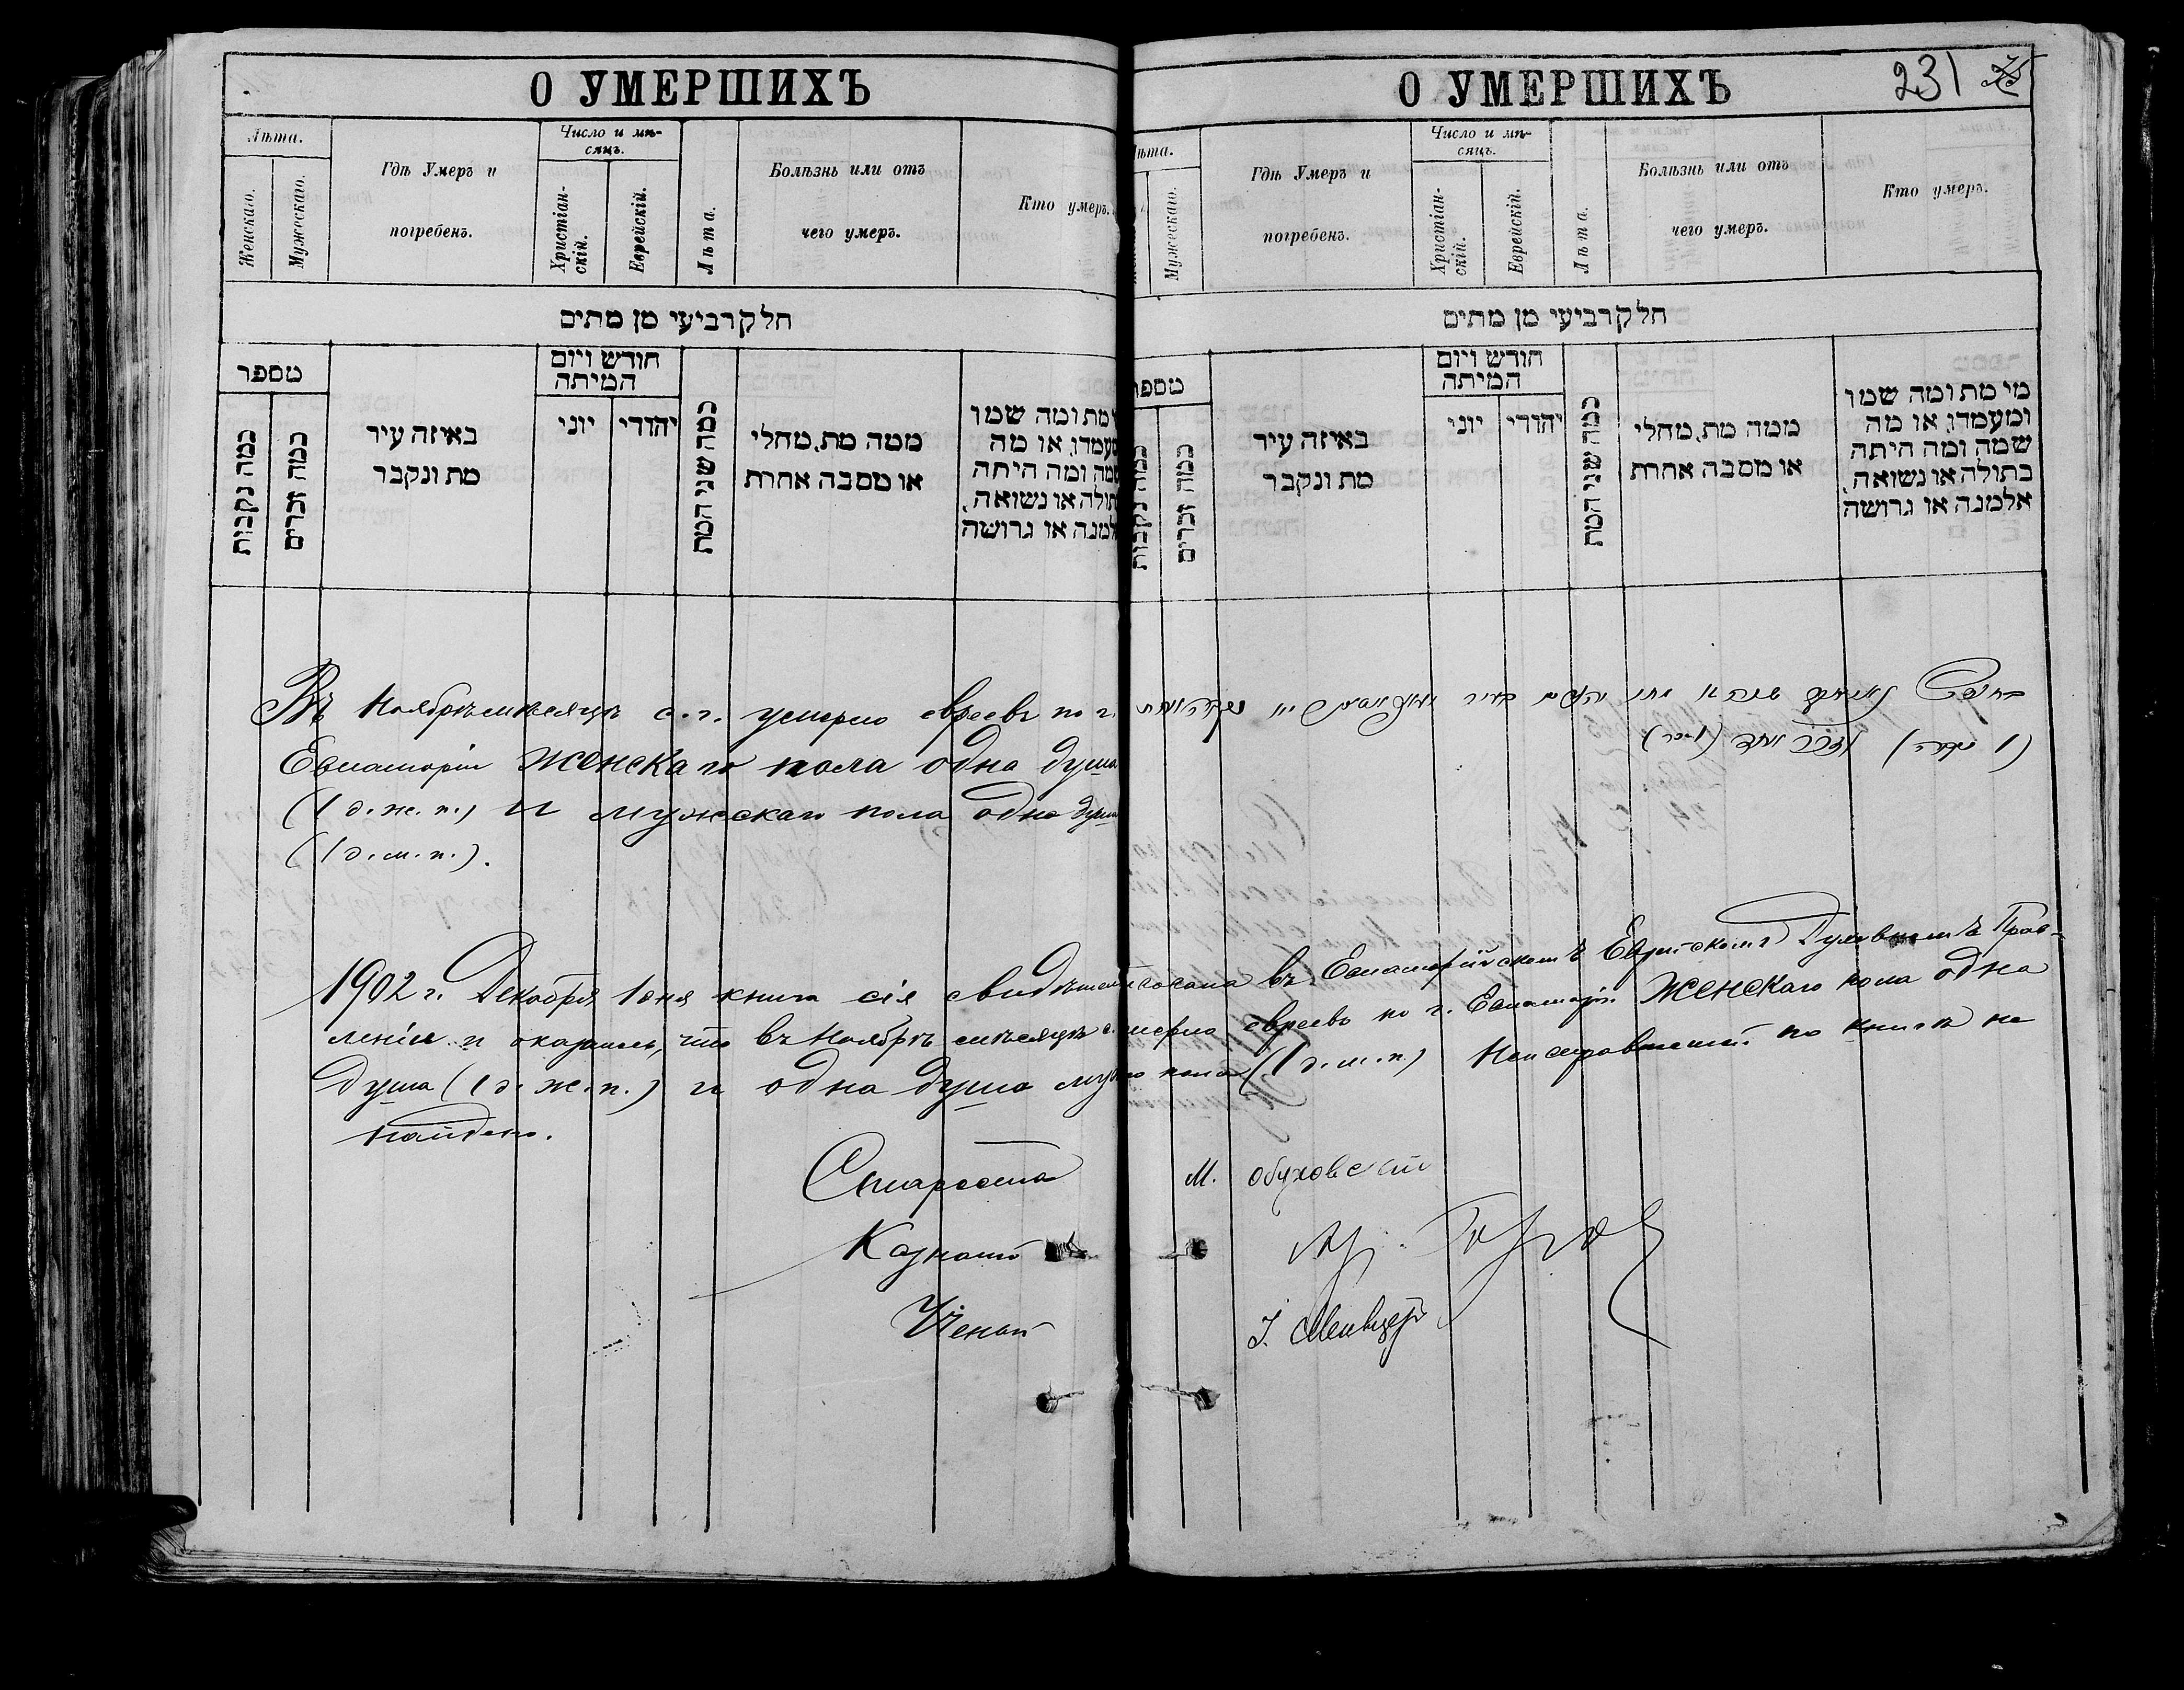 О УМЕРШИХЪ
Лѣта.
Женскаго.
Мужескаго.
Гдѣ Умеръ и
погребенъ.
Число и мѣ-
сяцъ.
Христіан-
скій.
Еврейскій.
Лѣта.
Болѣзнь или отъ
чего умеръ.
Кто умеръ.
חלק רביעי מן מתים
מספר
כמה נקבות
כמה זכרים
באיזה עיר
מת ונקבר
חודש ויום
המיתה
יוני
יהודי
כמה שני המת
ממה מת, מחלי
או מסבה אחרת
מת ומה שמו
או מה
ומה היתה
או נשואה,
או גרושה
Въ Ноябрѣ мѣсяцѣ с. г. умерло евреевъ по г.
Евпаторіи женскаго пола одна душа
(1 д. ж. п.) и мужскаго пола одна душа
(1 д. м. п.).
О УМЕРШИХЪ
231
Мужескаго.
Гдѣ Умеръ и
погребенъ.
Число и мѣ-
сяцъ.
Христіан-
скій.
Еврейскій.
Лѣта.
Болѣзнь или отъ
чего умеръ.
Кто умеръ.
חלק רביעי מן מתים
כמה זכרים
באיזה עיר
מת ונקבר
חודש ויום
המיתה
יוני
יהודי
כמה שני המת
ממה מת, מחלי
או מסבה אחרת
מי מת ומה שמו
ומעמדו, או מה
שמה ומה היתה
בתולה או נשואה,
אלמנה או גרושה
1902 г. Декабря 1 дня книга сія въ Евпаторійскомъ Еврейскомъ Духовномъ Прав-
леніи и оказалось, что въ Ноябрѣ мѣсяцѣ умерло евреевъ по г. Евпаторіи женскаго пола одна
душа (1 д. ж. п.) и одна душа пола (1 д. м. п.) Неисправностей по книгѣ не
найдено.
Староста М. Обуховскій
Казначей
Ученый І.